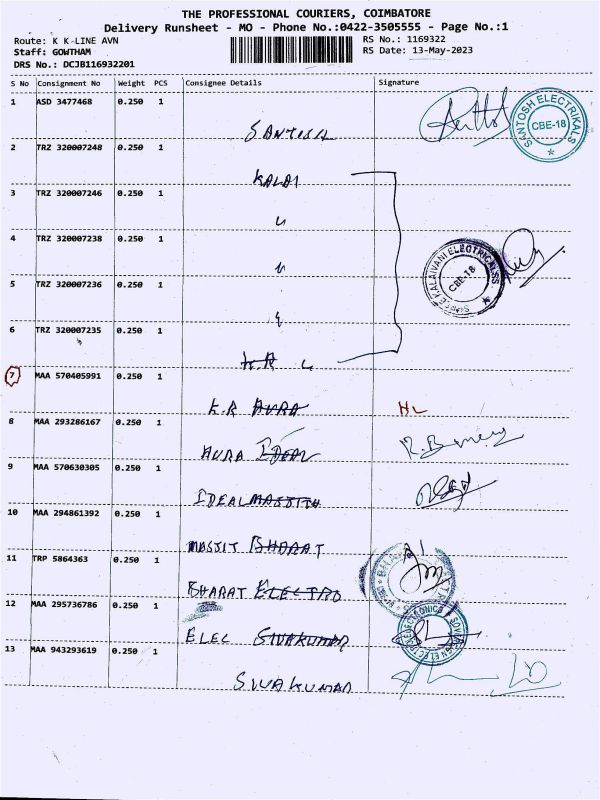 THE PROFESSIONAL COURIERS, COIMBATORE
Delivery Runsheet - MO - Phone No.:0422-3505555 - Page No.:1
Route: K K-LINE AVN
RS No.: 1169322
Staff: GOWTHAM
RS Date: 13-May-2023
DRS No.: DCJB116932201
S No Consignment No Weight PCS Consignee Details Signature
1 ASD 3477468 0.250 1
SANTOSH
SANTOSH ELECTRIKALS
CBE-18
2 TRZ 320007248 0.250 1
KALAI
3 TRZ 320007246 0.250 1
4 TRZ 320007238 0.250 1
SREE KALAIVANI ELECTRICALSS
CBE-18
5 TRZ 320007236 0.250 1
6 TRZ 320007235 0.250 1
7 MAA 570405991 0.250 1
K.R AURA
NL
8 MAA 293286167 0.250 1
AURA IDEAL
9 MAA 570630305 0.250 1
IDEAL MASJITH
10 MAA 294861392 0.250 1
MASJIT BHARAT
11 TRP 5864363 0.250 1
BHARAT ELECTRO
12 MAA 295736786 0.250 1
ELEC SIVAKUMAR
13 MAA 943293619 0.250 1
SIVAKUMAR